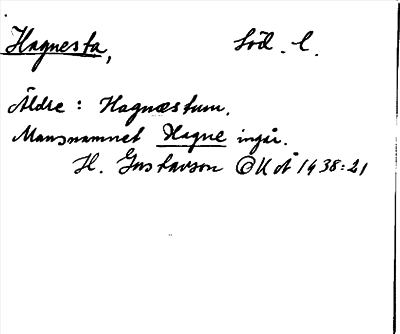 Hagnesta, Söd. l.
Äldre : Hagnæstum.
Mansnamnet Hagne ingår.
H. Gustavson OUÅ 1938:21